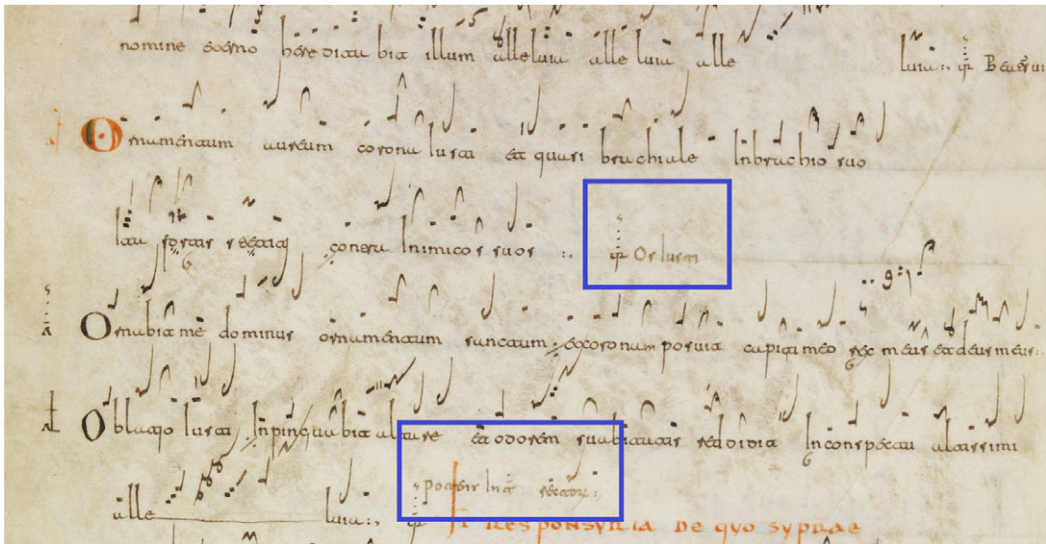 nomine eterno hereditabit illum alleluia alleluia alle luia :. Beatus ui
Ornamentum aureum corona iusti et quasi brachiale In brachio suo
fortis contra Inimicos suos :. Os iusti
Ornabit me dominus ornamentum sanctum et coronam posuit capiti meo rex meus et deus meus :.
Oblatio iusti Inpinguabit altare et odorem suabitatis reddidit In conspectu altissimi
alle luia :.
RESPONSURIA DE QUO SUPRAE